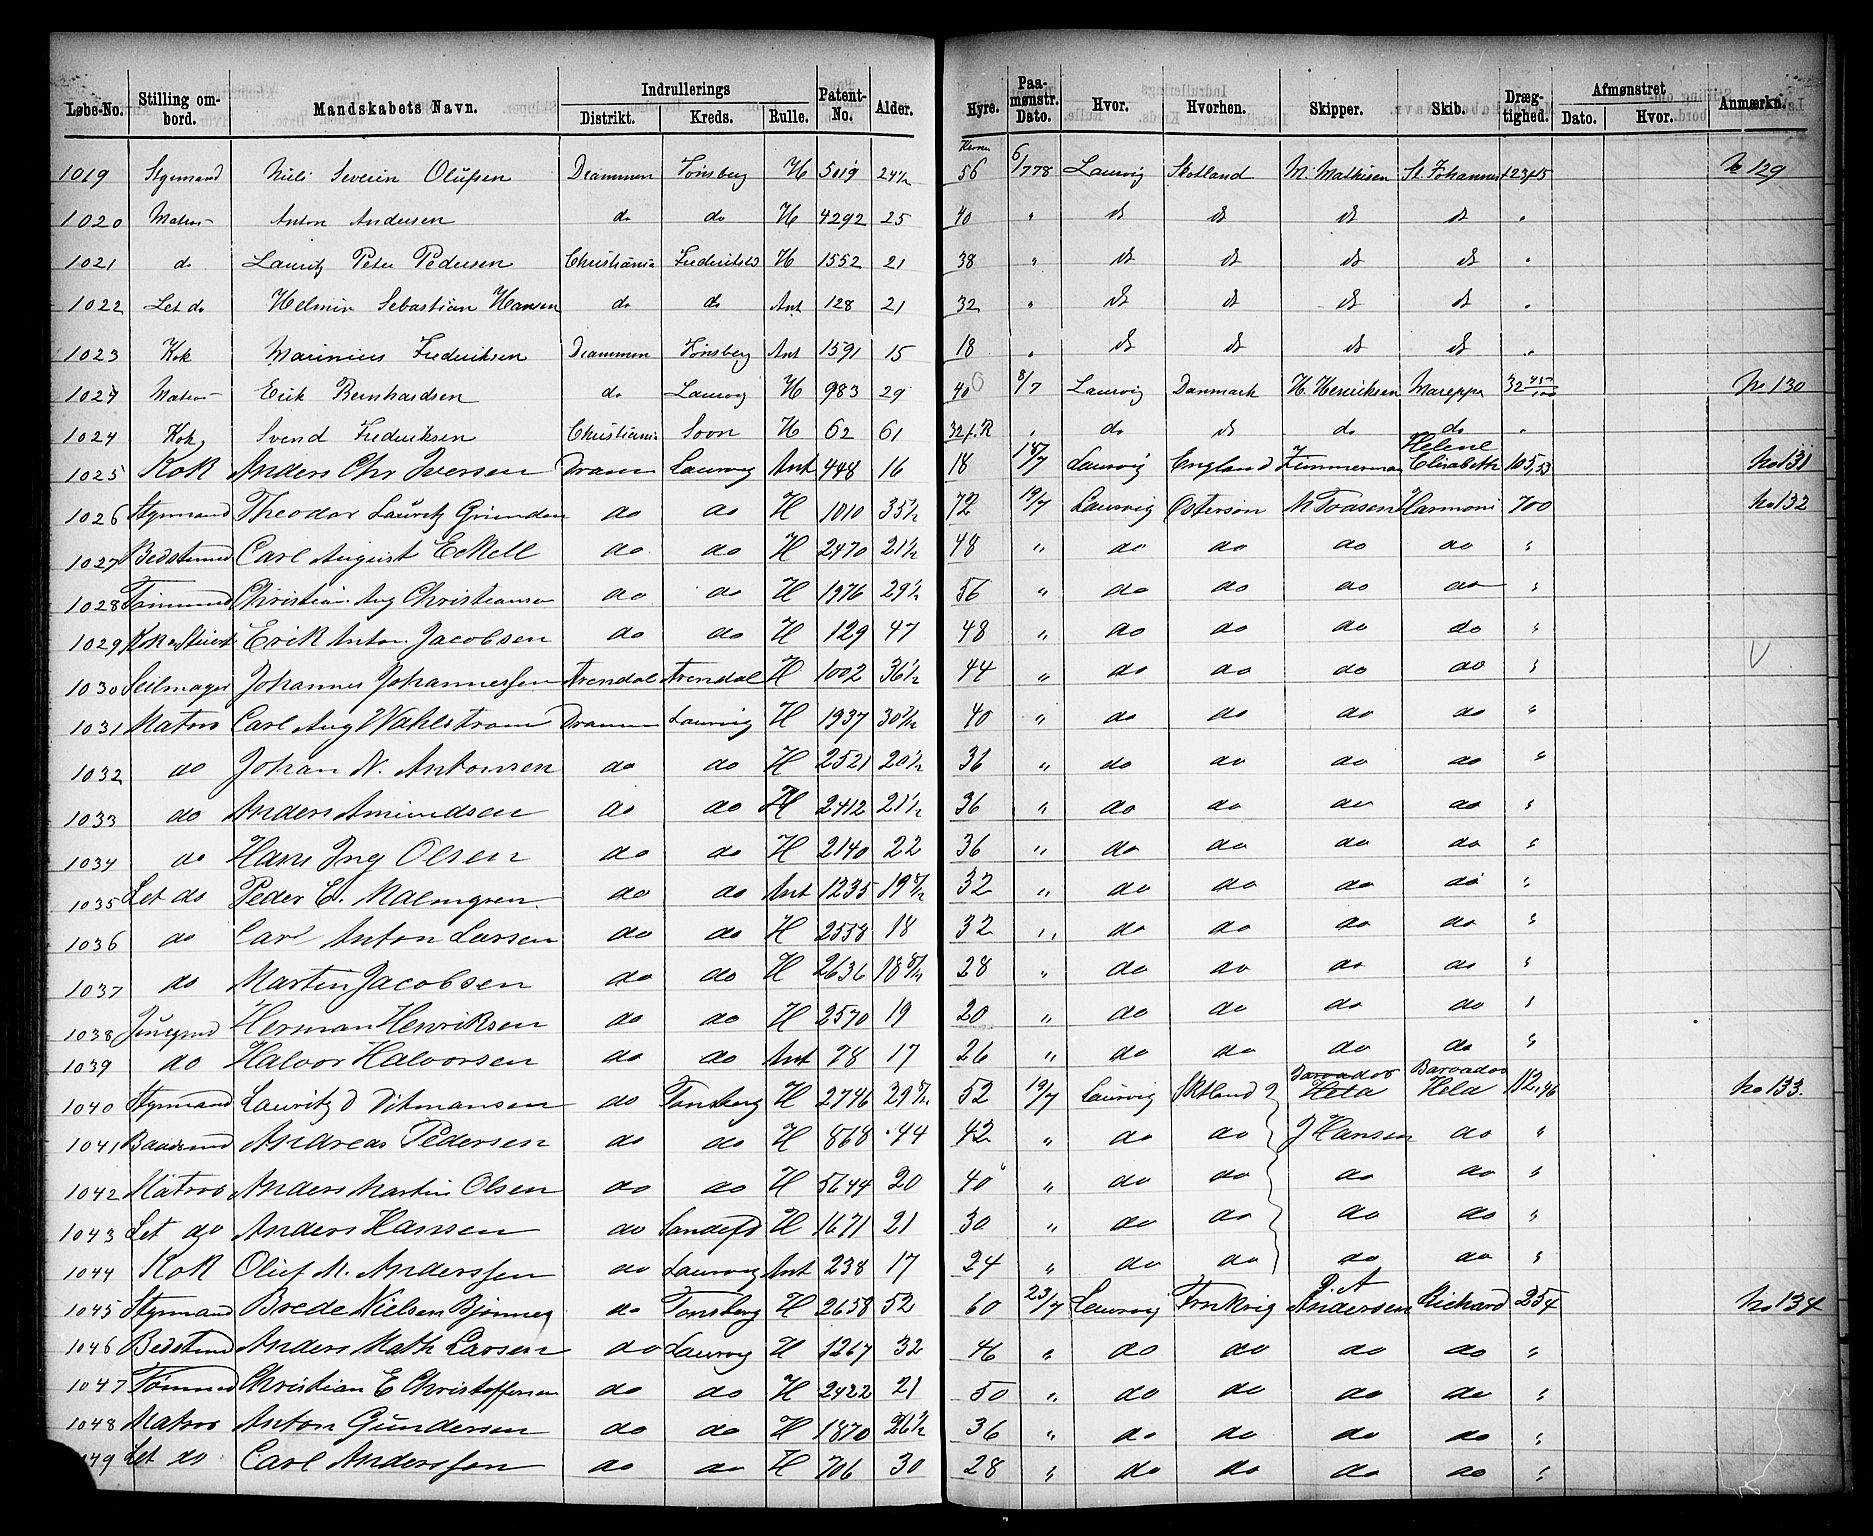 Løbe-No. Stilling ombord. Mandskabets Navn. Indrullerings Distrikt. Kreds. Rulle. Patent-No. Alder. Hyre. Paamønstr. Dato. Hvor. Hvorhen. Skipper. Skib. Drægtighed. Afmønstret Dato. Hvor. Anmærkn.
1019 Styrmand Nils Severin Olufsen Drammen Tønsberg H 5019 24 1/2 Kroner 56 6/7 78 Laurvig Skotland N. Mathisen St. Johannes No 129
1020 Matros Anton Andersen do do H 4292 25 40 " do do do do "
1021 do Lauritz Peter Pedersen Christiania H 1552 21 38 " do do do do "
1022 Let do Helmin Sebastian Hansen do do Ant 128 21 32 " do do do do "
1023 Kok Marinius Frederiksen Drammen Tønsberg Ant 1591 15 18 " do do do do "
1024 Matros Erik Bernhardsen do Laurvig H 983 29 40 8/7 Laurvig Danmark H. Henriksen 32 45/100 No 130
1024 Kok Svend Frederiksen Christiania Soon H 62 61 32 " do do do do "
1025 Kok Anders Chr Iversen Dram Laurvig Ant 448 16 18 18/7 Laurvig England Zimmerman Helene Elisabeth 105,53 No 131
1026 Styrmand Theodor Lauritz do do H 1010 35 1/2 72 19/7 Laurvig Østersøn Harmoni 700 No 132
1027 Bedstemnd Carl August Eckell do do H 2470 21 1/2 48 " do do do do "
1028 Tømmnd Christian Aug Christiansen do do H 1976 29 1/2 56 " do do do do "
1029 Kok o Stuert Erik Anton Jacobsen do do H 129 47 48 " do do do do "
1030 Seilmager Johannes Johannessen Arendal Arendal H 1002 36 1/2 44 " do do do do "
1031 Matros Carl Aug Wahlstrøm Dramm Laurvig H 1937 40 " do do do do "
1032 do Johan N. Antonsen do do H 2521 20 1/2 36 " do do do do "
1033 do Anders Amundsen do do H 2412 21 1/2 36 " do do do do "
1034 do Hans Ing Olsen do do H 2140 22 36 " do do do do "
1035 Let do Peder C. Malmgren do do Ant 1235 32 " do do do do "
1036 do Carl Anton Larsen do do H 2538 18 32 " do do do do "
1037 do Martin Jacobsen do do H 2636 28 " do do do do "
1038 Jungmd Herman Henriksen do do H 2570 19 20 " do do do do "
1039 do Halvor Halvorsen do do Ant 78 17 26 " do do do do "
1040 Styrmand Lauritz D Ditmansen do Tønsberg H 2746 52 19/7 Laurvig Skotland Hela Hela 112,46 No 133.
1041 Baadsmd Andreas Pedersen do do H 868 44 42 " do do J Hansen do "
1042 Matros Anders Martin Olsen do do H 5644 20 40 " do do do do "
1043 Let do Anders Hansen do Sandefd H 1671 21 30 " do do do do "
1044 Kok Oluf M. Anderssen do Laurvig Ant 238 17 24 " do do do do "
1045 Styrmand Brede Nielsen do Tønsberg H 2658 52 60 23/7 Laurvig Frnkrig P. A Andersen Richard 254 No 134
1046 Bedstmd Anders Math Larsen do Laurvig H 1267 32 46 " do do do do "
1047 Tømmd Christian E Christoffersen do do H 2422 21 50 " do do do do "
1048 Matros Anton Gundersen do do H 1870 26 1/2 36 " do do do do "
1049 Let do Carl Anderssen do do H 706 30 28 " do do do do "